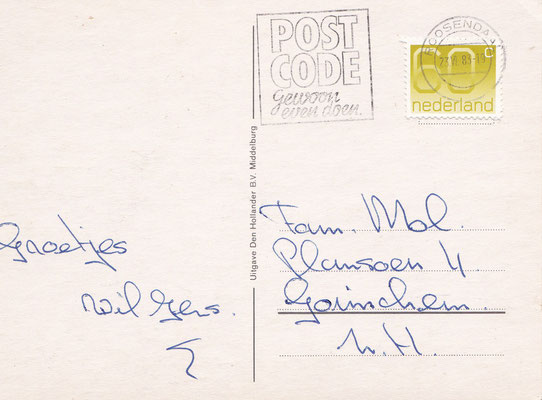 POST
CODE
gewoon
even doen.
ROOSENDAAL
60 c
nederland
Uitgave Den Hollander B.V. Middelburg
Groetjes
Wil
Fam. Mol.
Plansoen 4
Gorinchem.